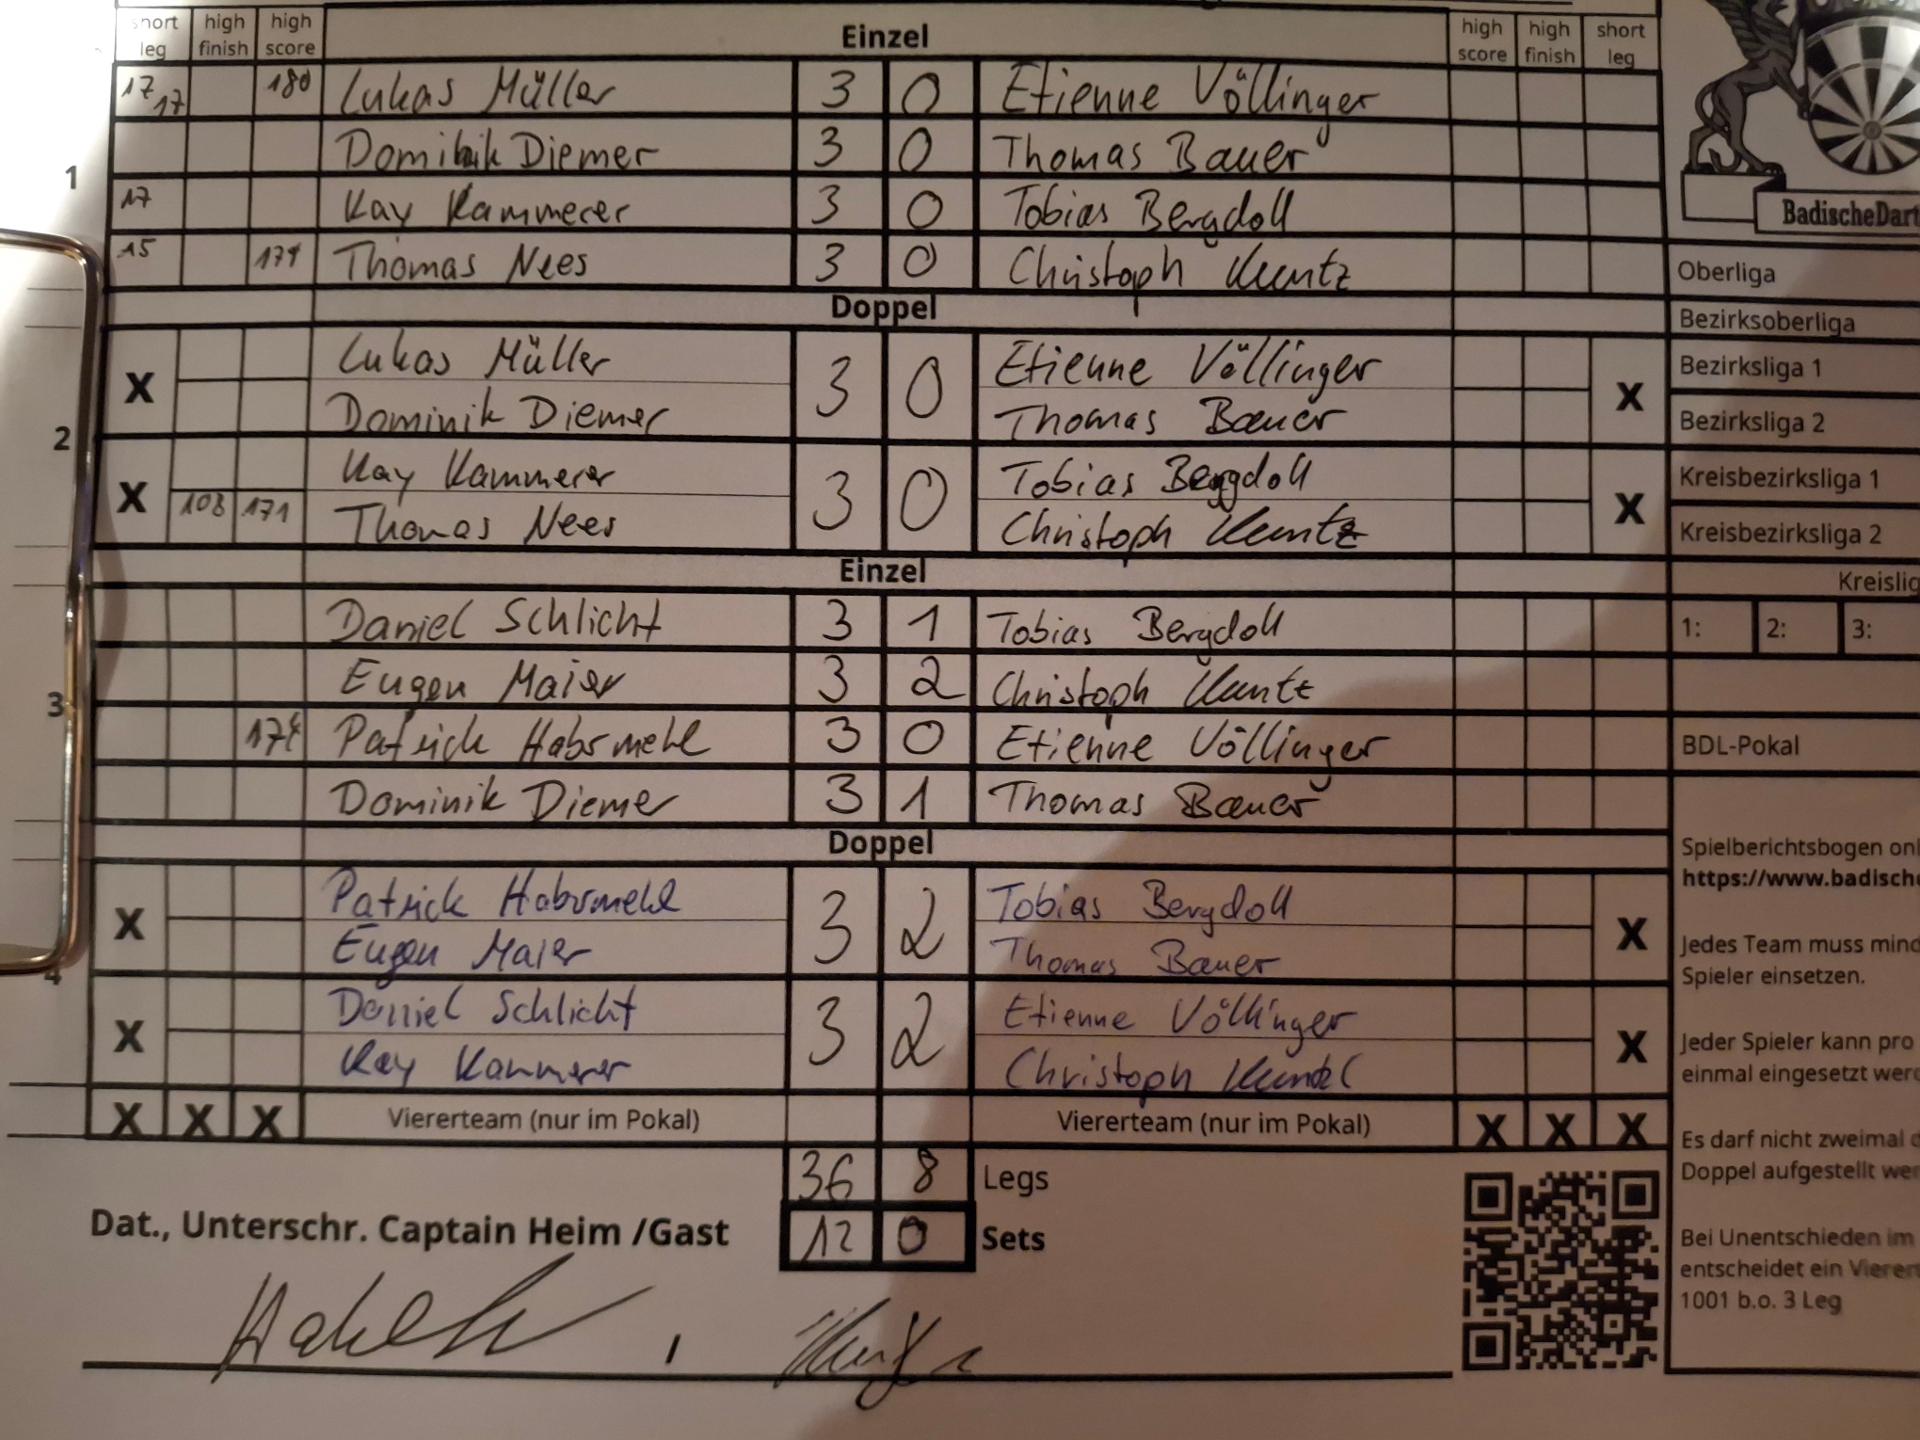 short leg high finish high score Einzel high score high finish short leg
17 17 180 Lukas Müller 3 0 Etienne Völlinger
1 Dominik Diemer 3 0 Thomas Bauer
17 Kay Kammerer 3 0 Tobias Bergdoll
15 171 Thomas Nees 3 0 Christoph Kuntz
Doppel
Lukas Müller 3 0 Etienne Völlinger
X Dominik Diemer Thomas Bauer X
2
Kay Kammerer 3 0 Tobias Bergdoll
X 103 171 Thomas Nees Christoph Kuntz X
Einzel
Daniel Schlicht 3 1 Tobias Bergdoll
Eugen Maier 3 2 Christoph Kuntz
3 174 Patrick Habermehl 3 0 Etienne Völlinger
Dominik Diemer 3 1 Thomas Bauer
Doppel
Patrick Habermehl 3 2 Tobias Bergdoll
X Eugen Maier Thomas Bauer X
4
Daniel Schlicht 3 2 Etienne Völlinger
X Kay Kammerer Christoph X
X X X Viererteam (nur im Pokal) Viererteam (nur im Pokal) X X X
36 8 Legs
Dat., Unterschr. Captain Heim /Gast 12 0 Sets
BadischeDart
Oberliga
Bezirksoberliga
Bezirksliga 1
Bezirksliga 2
Kreisbezirksliga 1
Kreisbezirksliga 2
Kreislig
1: 2: 3:
BDL-Pokal
Spielberichtsbogen onl
https://www.badische
Jedes Team muss mind
Spieler einsetzen.
Jeder Spieler kann pro
einmal eingesetzt werd
Es darf nicht zweimal d
Doppel aufgestellt wer
Bei Unentschieden im
entscheidet ein Viерert
1001 b.o. 3 Leg